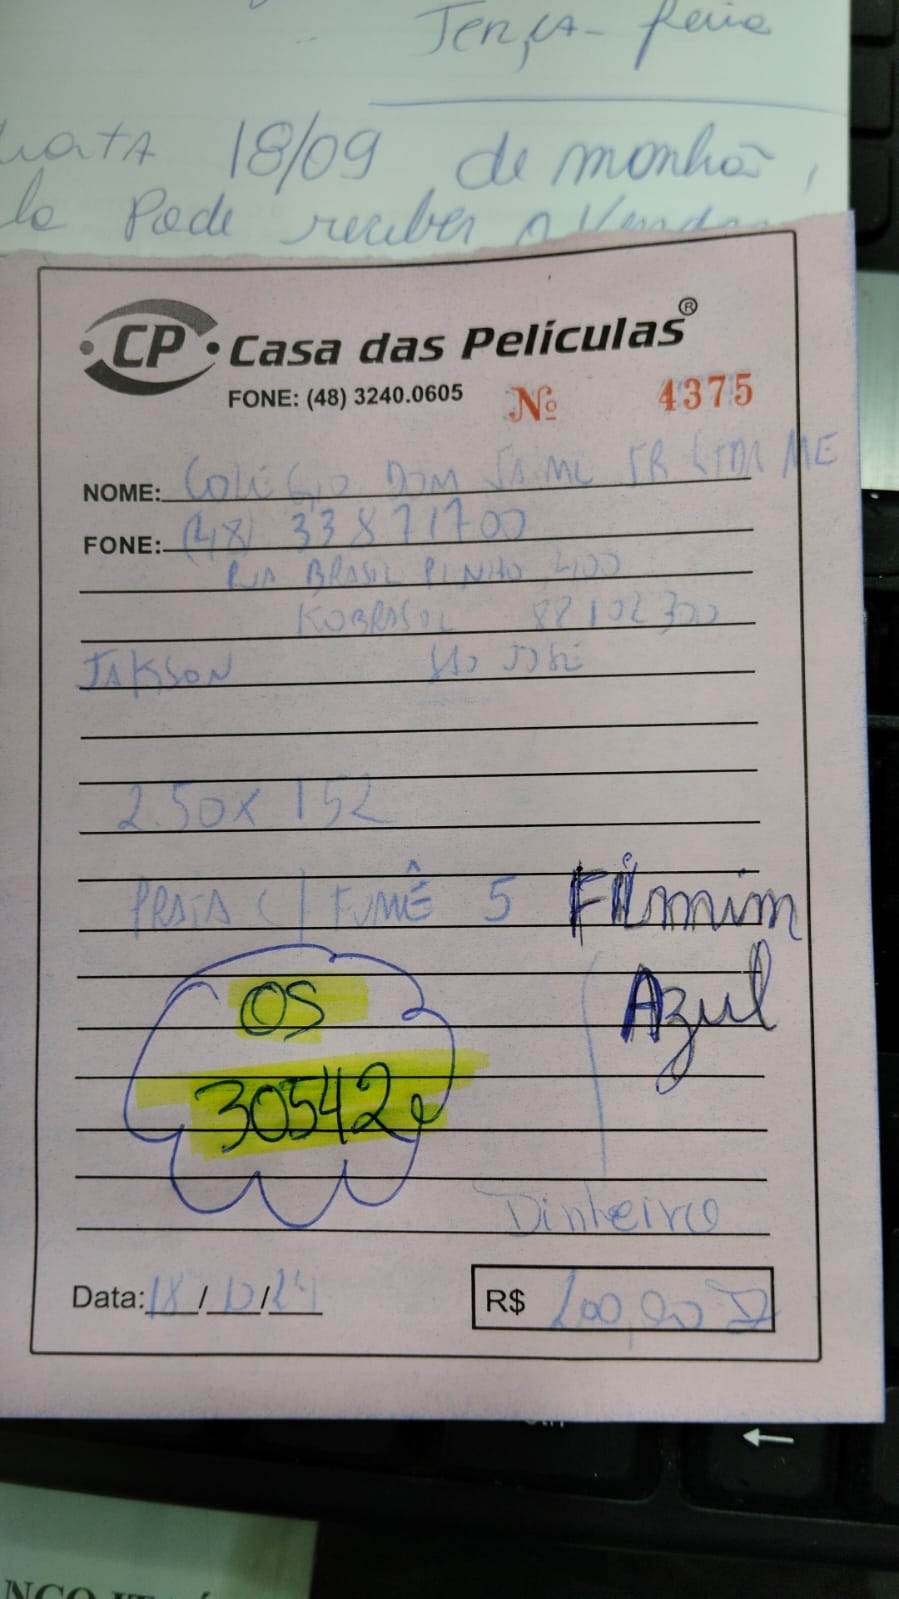 Terça-feira
18/09 de manhã,
Pode receber o
CP Casa das Películas®
FONE: (48) 3240.0605 Nº 4375
NOME: COLÉGIO DOM JAIME JR LTDA ME
FONE: (48) 33871700
RUA BRASIL PINHO, 400
KOBRASOL 88102300
JAKSON SÃO JOSÉ
2.50 x 152
PRATA C/ FUMÊ 5 Filmim
Azul
OS
30542
Dinheiro
Data: 18/10/24 R$ 200,00